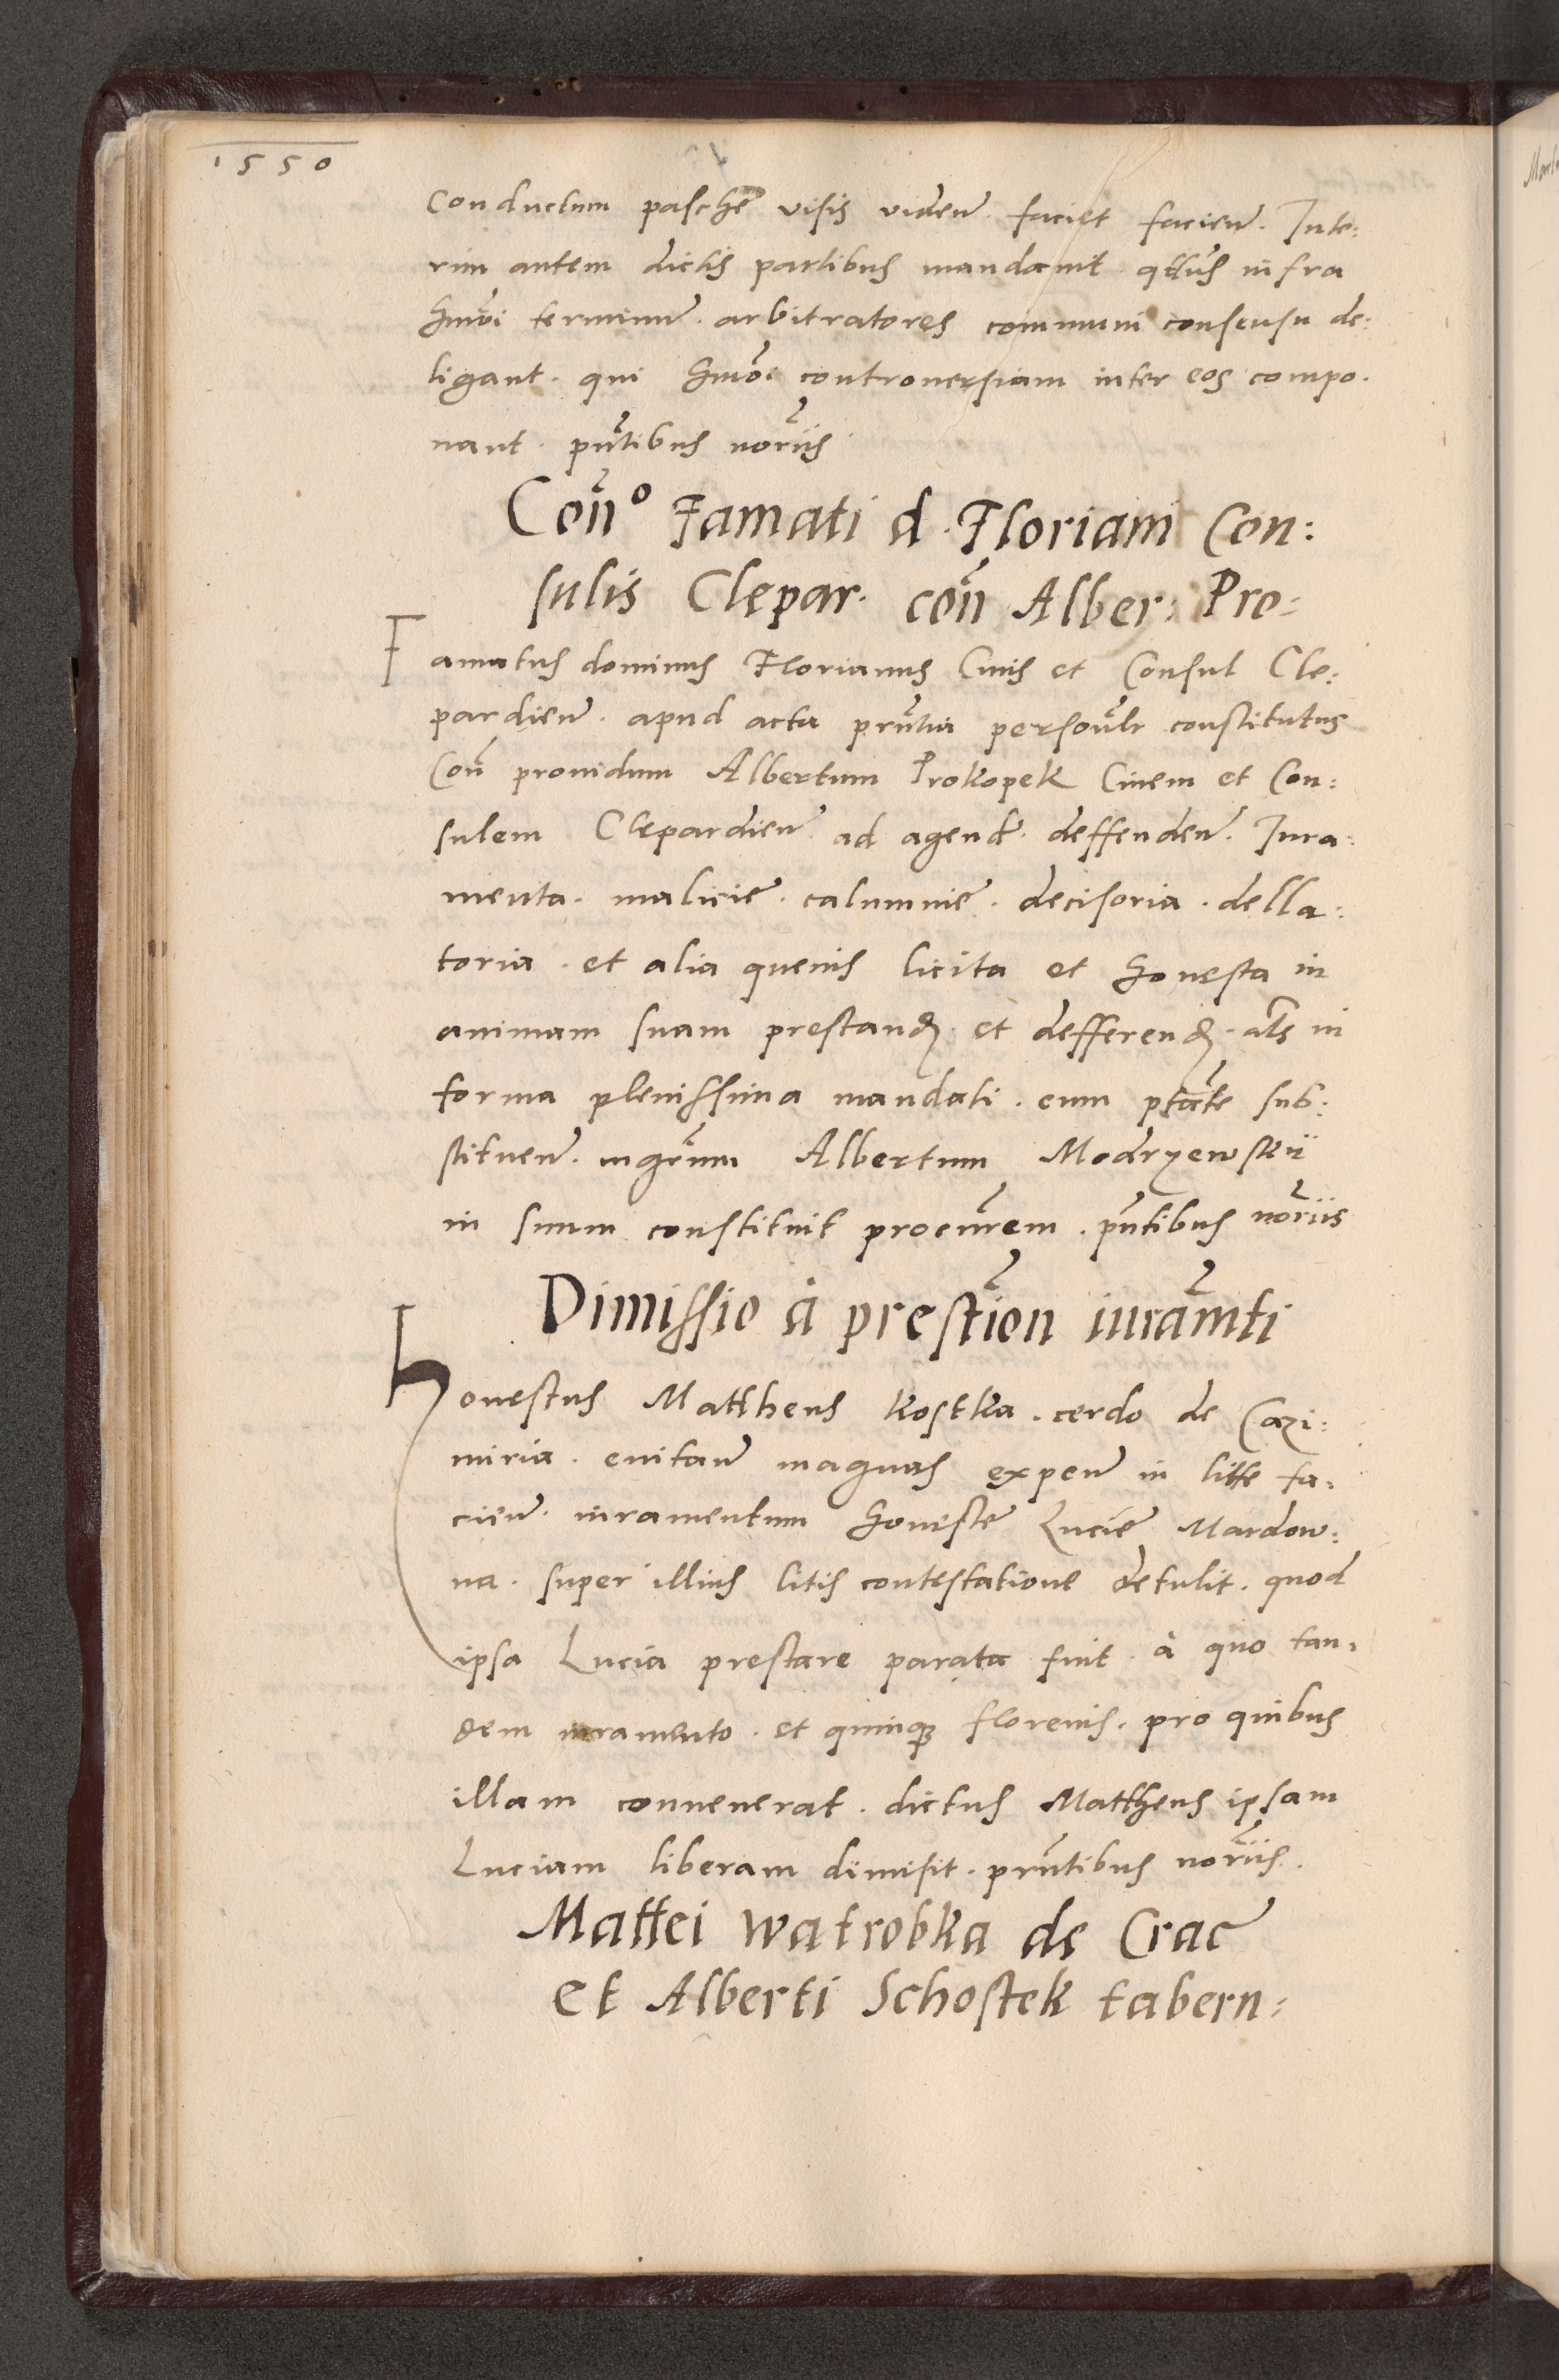 1550
Conductum paschę visis viden̄. faciet facien̄. Inte:
rim autem dictis partibus mandavit q̄tus infra
hmōi terminū. arbitratores communi consensu de:
ligant. qui hmōi controversiam inter eos compo.
nant. pn̄tibus norīīs
Con̄o Famati d. Floriani Con:
sulis Clepar. con̄ Alber: Pro:
Famatus dominus Florianus Civis et Consul Cle:
pardien̄. apud acta prn̄tia person̄lr constitutus
Con̄ providum Albertum Prokopek Civem et Con:
sulem Clepardien̄ ad agend̄. deffenden̄. Iura:
menta. malicie. calumnie. decisoria. della:
toria. et alia quevis licita et honesta in
animam suam prestand. et defferend. al̄s in
forma plenissima mandati. cum ptāte sub:
stituen̄. mgr̄um Albertum Modrzewskii
in suum constituit procur̄em. pn̄tibus norīīs
Dimissio à prestīon iurām̄ti
Honestus Mattheus Kostka. cerdo de Cazi:
miria. evitan̄ magnas expen̄ in litte fa:
cien̄. iuramentum honestę Lucię Mardow:
na. super illius litis contestatione detulit. quod
ipsa Lucia prestare parata fuit. à quo tan:
dem iuramento. et quinque florenis. pro quibus
illam convenerat. dictus Mattheus ipsam
Luciam liberam dimisit. prn̄tibus norīīs.
Mattei Watrobka de Crac̄
Et Alberti Schostek tabern: